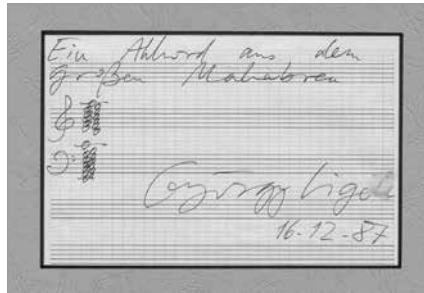 Ein Akkord aus dem
Großen Makabren
György Ligeti
16-12-87